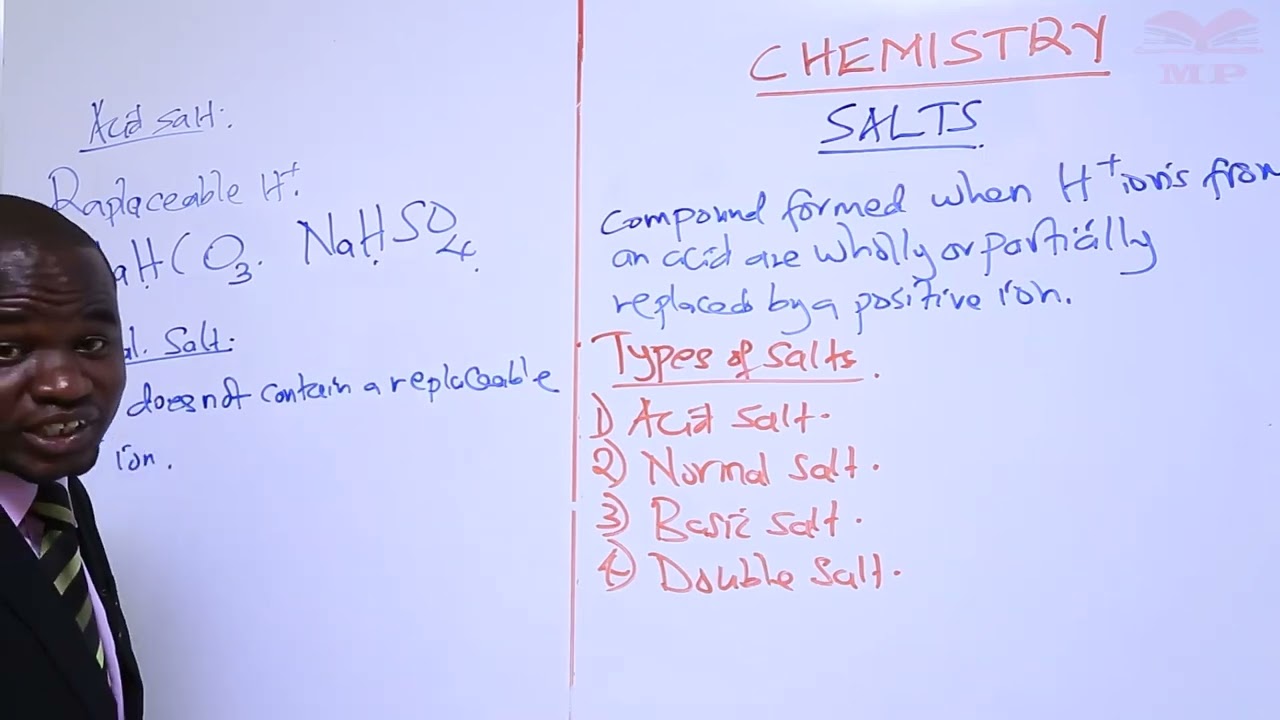 Acid salt.
Raplaceable H⁺.
aHCO₃. NaHSO₄.
al. Salt.
does not contain a replaceable
ion.
CHEMISTRY
SALTS
Compound formed when H⁺ ions from
an acid are wholly or partially
replaced by a positive ion.
Types of salts.
1) Acid salt.
2) Normal salt.
3) Basic salt.
4) Double salt.
MP